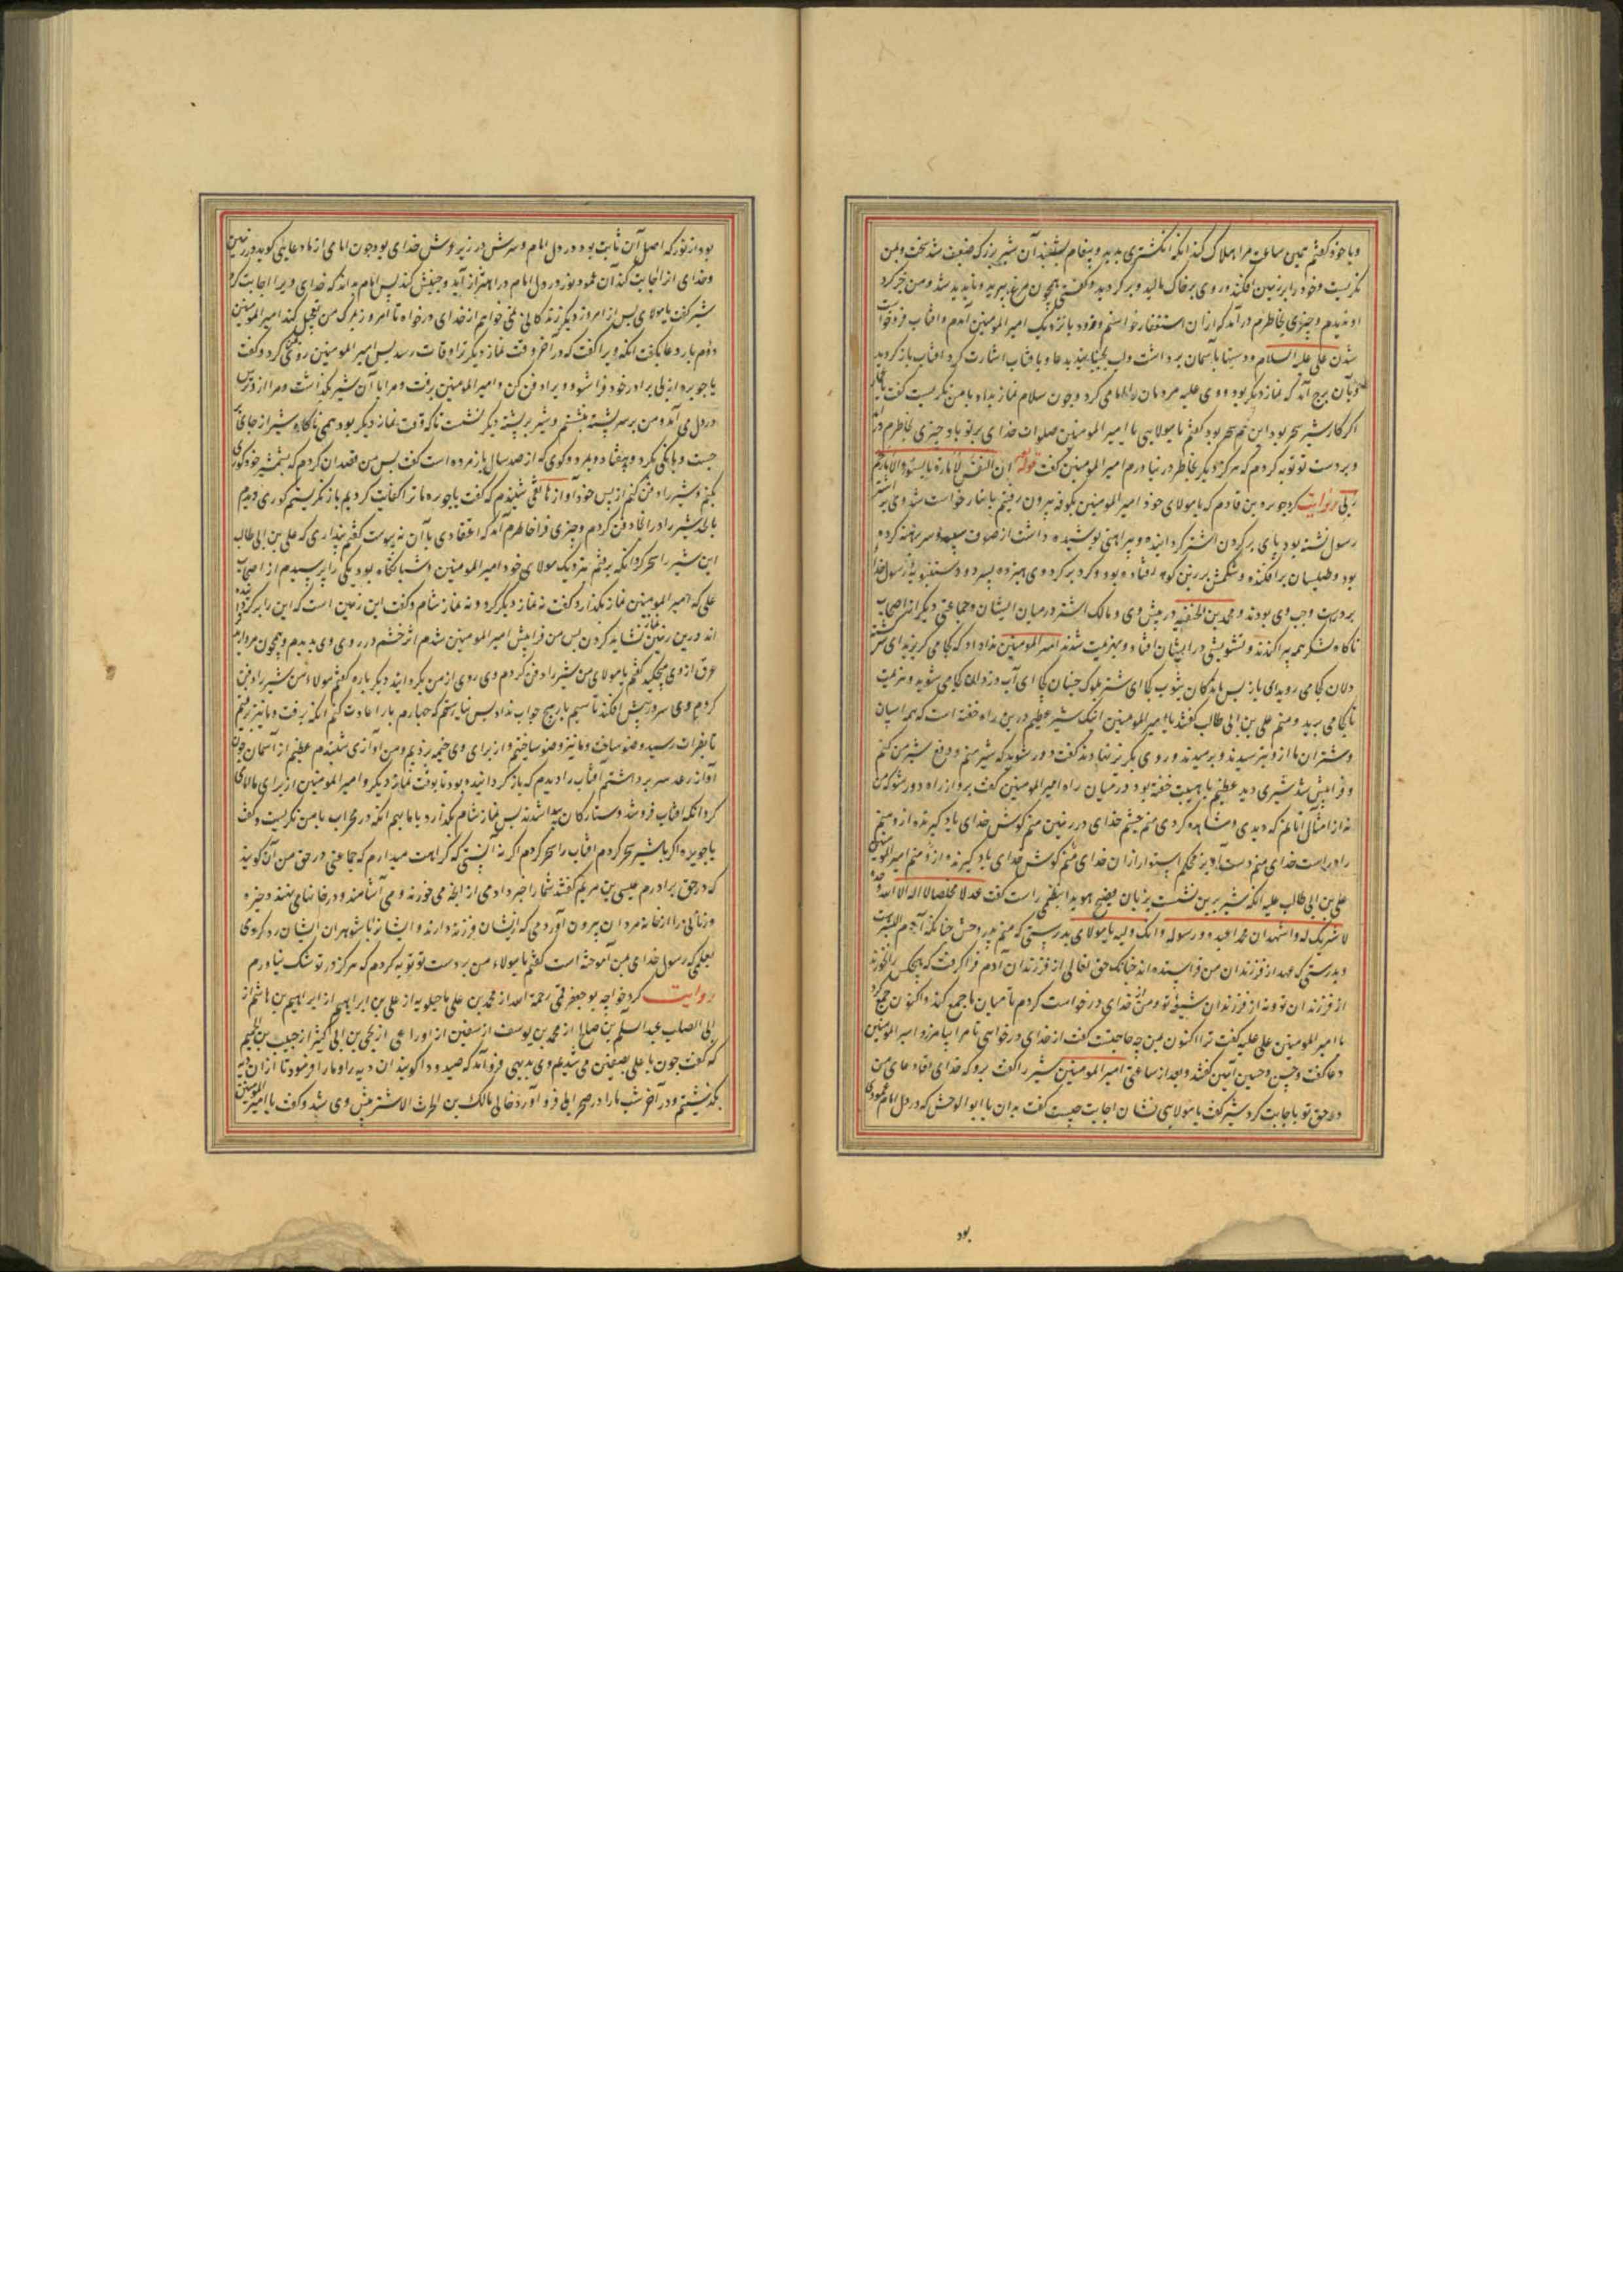 و با خود گفتم همین ساعت مرا هلاک کند آنکه انگشتری بدید و پیغام بشنید آن شیر بزرک ضعیف شد سخت و بمن
نکریست و خود را بر زمین افکند و روی بر خاک مالید و بر کردید و گفتی همچون مرغ بپرید و ناپدید شد و من خر کرد
او ندیدم و چیزی بخاطرم درآمد که از آن استغفار خواستم و فرود با نزدیک امیر المومنین آمدم و آفتاب فرو خواست
شدن علی علیه السلام دستها بآسمان برداشت و لب بجنبانید بدعا و با فتاب اشارت کرد آفتاب باز کردید
و بآن برج آمد که نماز دیگر بود و وی علیه مردمان را امامی کرد و چون سلام نماز بداد با من نکریست گفت یا
اکر کار شیر سحر بود این هم سحر بود گفتم یا مولای یا امیر المومنین صلوات خدای بر تو باد چیزی بخاطرم در آمد
و بر دست تو توبه کردم که هرکز دیگر بخاطر در نیاورم امیر المومنین گفت قوله ان النفس لأمارة بالسوء الا ما رحم
ربی روایت کرد جویره بن قادم که با مولای خود امیر المومنین بکوفه بیرون رفتیم بانبار خواست شد وی بر اشتر
رسول نشسته بود پای بر کردن اشتر کردانیده و پیراهنی پوشیده داشت از صوف سپید و سر برهنه کرده
بود و طیلسان برافکنده و شکمش بر زین کوهه افتاده بود و کرد بر کرد وی هیزده پسر و دو دستنبویه رسول خدا
بر راست و چپ وی بودند و محمد بن الحنفیه در پیش وی و مالک اشتر در میان ایشان و جماعتی دیگر از اصحاب
ناکاه لشکر همه پراکندند و تشویشی در ایشان افتاد و بهزیمت شدند امیر المومنین ندا داد که کجا می کریزید ای شتر
دلان کجا می روید ای باز پس ماندکان شوب کجا ای شتر بلوک جنبان کجا ای آب دزدان کجا می شوید و هزیمت
تا کجا می برید و منم علی بن ابی طالب گفتند یا امیر المومنین اینک شیر عظیم درین راه خفته است که همه اسپان
و شتران ما از و بترسیدند و برمیدند و روی بکریز نهادند گفت دور شوید که شیر منم و دفع شیر من کنم
و فرا پیش شد شیری دید عظیم با هیبت خفته بود در میان راه امیر المومنین گفت برو از راه دور شو که من
نه از امثال آنانم که دیدی و مشاهده کردی منم چشم خدای در زمین منم کوش خدای یاد کیرنده از و منم
راه راست خدای منم دست آویز محکم استوار از آن خدای منم کوش خدای یاد کیرنده از و منم امیر المومنین
علی بن ابی طالب علیه آنکه شیر برین نشست بزبان فصیح هویدا بنطقی راست گفت عدلا مخلصا لا اله الا الله وحده
لا شریک له و اشهد ان محمدا عبده و رسوله و انک ولیه یا مولای بدرستی که منم پدر وحش چنانکه آدم ابو البشر
و بدرستی که عهد از فرزندان من فراستده اند چنانکه حق تعالی از فرزندان آدم فرا کرفت که هیچکس را نخورند
از فرزندان تو و نه از فرزندان شیعه تو و من از خدای درخواست کردم تا میان ما جمع کند و اکنون جمع کرد
یا امیر المومنین علی علیه گفت ترا اکنون بمن چه حاجتست گفت از خدای درخواهی تا مرا بیامرزد امیر المومنین
دعا گفت و حسن و حسین آمین گفتند و بعد از ساعتی امیر المومنین شیر را گفت برو که خدای تعالی دعای من
در حق تو باجابت کرد شیر گفت یا مولای نشان اجابت چیست گفت بدان یا ابو الوحش که در دل امام عمودی
بود
بود از نور که اصل آن ثابت بود در دل امام و سرش در زیر عرش خدای بود چون امامی از ما دعایی گوید در زمین
و خدای از اجابت کند آن عمود نور در دل امام در اهتزاز آید و جنبش کند پس امام بداند که خدای ویرا اجابت کرد
شیر گفت یا مولای پس از امروز دیگر زندکانی نمی خواهم از خدای درخواه تا امروز مرگ من تعجیل کند امیر المومنین
دوم بار دعا بگفت آنکه ویرا گفت که در آخر وقت نماز دیگر ترا وفات رسد پس امیر المومنین روی بمن کرد و گفت
یا جویره از پی برادر خود فرا شو و ویرا دفن کن و امیر المومنین برفت و مرا با آن شیر بگذاشت و مرا از و ترس
در دل می آمد و من بر سر پشته بنشستم و شیر بر پشته دیگر نشست تا که وقت نماز دیگر بود همی ناکاه شیر از جای بر
جست و بانگی بکرد و بیفتاد و بمرد و گوی که از صد سال باز مرده است گفت پس من قصد آن کردم که بشمشیر خود کوری
بکنم و شیر را دفن کنم از پس خود آواز هاتفی شنیدم که گفت یا جویره ما ترا کفایت کردیم باز نکریستم کوری دیدم
با لحد شیر را در آنجا دفن کردم و چیزی فرا خاطرم آمد که اعتقادی با آن نه پیوست گفتم پنداری که علی بن ابی طالب
این شیر را سحر کرد آنکه برفتم نزدیک مولای خود امیر المومنین و شبانکاه بود یکی را پرسیدم از اصحاب
علی که امیر المومنین نماز بگذارد گفت نه نماز دیگر کرد و نه نماز شام و گفت این زمین است که این را بر کزیده
اند درین زمین نماز نشاید کردن پس من فرا پیش امیر المومنین شدم اثر خشم در روی وی بدیدم و همچون مروارید
عرق از وی میچکید گفتم یا مولای من شیر را دفن کردم وی روی از من بگردانید دیگر باره گفتم مولاء من شیر را دفن
کردم وی سر در پیش افکند تا سیم بار هیچ جواب نداد پس نیارستم که چهارم بار اعادت کنم آنکه برفت و ما نیز برفتیم
تا بفرات رسید وضو ساخت و ما نیز وضو ساختیم و از برای وی خیمه زدیم و من آوازی شنیدم عظیم از آسمان چون
آواز رعد سر برداشتم آفتاب را دیدم که باز کردانیده بود تا بوقت نماز دیگر و امیر المومنین از برای ما امامی
کرد آنکه آفتاب فرو شد و ستارکان پیدا شدند پس نماز شام بگذارد با ما بهم آنکه در محراب با من نکریست و گفت
یا جویره اکر با شیر سحر کردم آفتاب را سحر کردم اکر نه آنستی که کراهت میدارم که جماعتی در حق من آن گویند
که در حق برادرم عیسی بن مریم گفتند شما را خبر دادمی از آنچه می خورند و می آشامند و در خانها می نهند ذخیره
و زنانی را از خانه مردان بیرون آوردمی که از ایشان فرزند دارند و ایشانرا با شوهران ایشان رد کردمی
بعلمی که رسول خدای بمن آموخته است گفتم یا مولاء من بر دست تو توبه کردم که هرکز در تو شک نیاورم
روایت کرد خواجه بو جعفر قمی رحمة الله از محمد بن علی ماجیلویه از علی بن ابراهیم از ابراهیم بن هاشم از
ابی الصلت عبد السلم بن صالح از محمد بن یوسف از سفین از اوزاعی از یحیی بن ابی کثیر از حبیب بن الجهم
که گفت چون با علی بصفین می شدیم وی بدیهی فرو آمد که صیدودا کویند از آن دیه راه ما را فرمود تا از آن دیه
بگذشتیم و در آخر شب ما را در صحرایی فرو آورد خالی مالک بن الحرث الاشتر پیش وی شد و گفت یا امیر المومنین